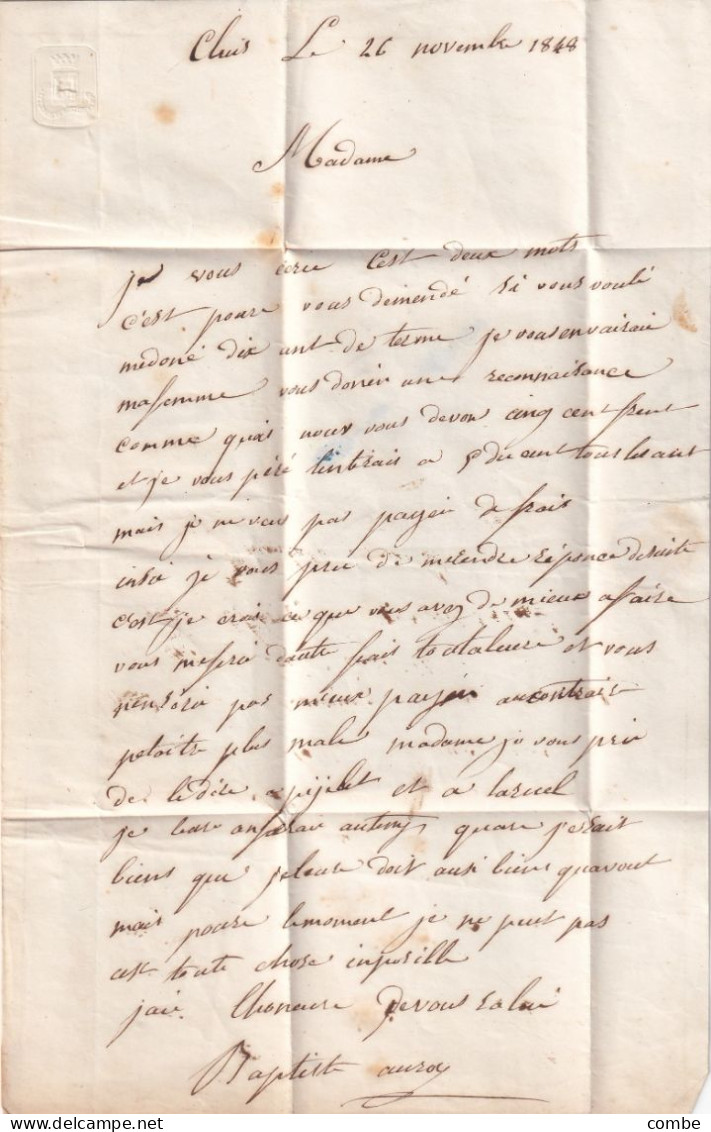 Cluis Le 26 novembre 1848
Madame
je vous écrie C'est deux mots
c'est poure vous demendé si vous voulé
medoné dix ant de terme je vous envairai
mafemme vous donér une reconnaisance
comme quois nous vous devon cinq cent frent
et je vous péré lintérais a 5 du cent tous les ant
mais je ne veus pas payér de frais
insi je vous prie de me rendre réponce desuite
c'est je crois ce que vous avez de mieux a faire
vous meferié daute frais toutaleure et vous
n'enseré pas mieux payér aucontraire
petaitre plus male madame je vous prie
de le dire a pijelet et a
je leur anferai autemps quare je sait
biens que je leure doit ausi biens qu'avout
mais poure lemoment je ne peut pas
est toute chose inposille
jai Lhoneure Devous salué
Baptiste auroy
combe